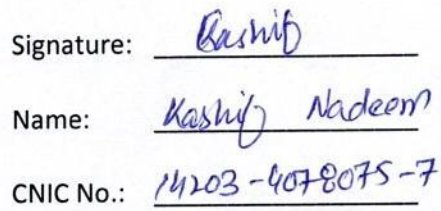 Signature: Kashif
Name: Kashif Nadeem
CNIC No.: 14203-4078075-7